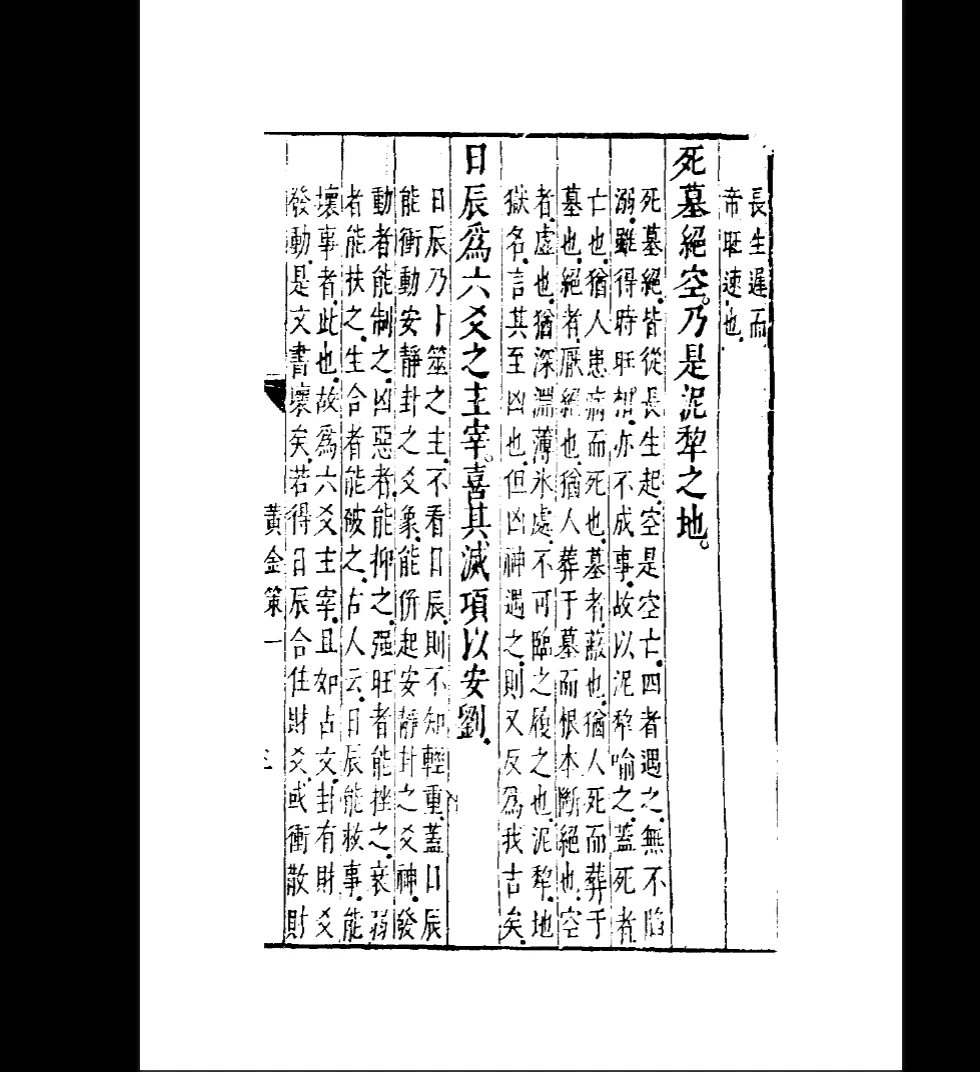 長生遲而
帝旺速也
死墓絕空。乃是泥犂之地。
死墓絕皆從長生起空是空亡四者遇之無不陷
溺雖得時旺相亦不成事故以泥犂喻之蓋死者
亡也猶人患病而死也墓者蔽也猶人死而葬于
墓也絕者厭絕也猶人葬于墓而根本斷絕也空
者虛也猶深淵薄氷處不可臨之履之也泥犂地
獄名言其至凶也但凶神遇之則又反為我吉矣
日辰爲六爻之主宰。喜其滅項以安劉
日辰乃卜筮之主不看日辰則不知輕重蓋日辰
能衝動安靜卦之爻象能倂起安靜卦之爻神發
動者能制之凶惡者能抑之强旺者能挫之衰弱
者能扶之生合者能破之占人云日辰能救事能
壞事者此也故爲六爻主宰且如占文卦有財爻
發動是文書壞矣若得日辰合住財爻或衝散財
黃金策一